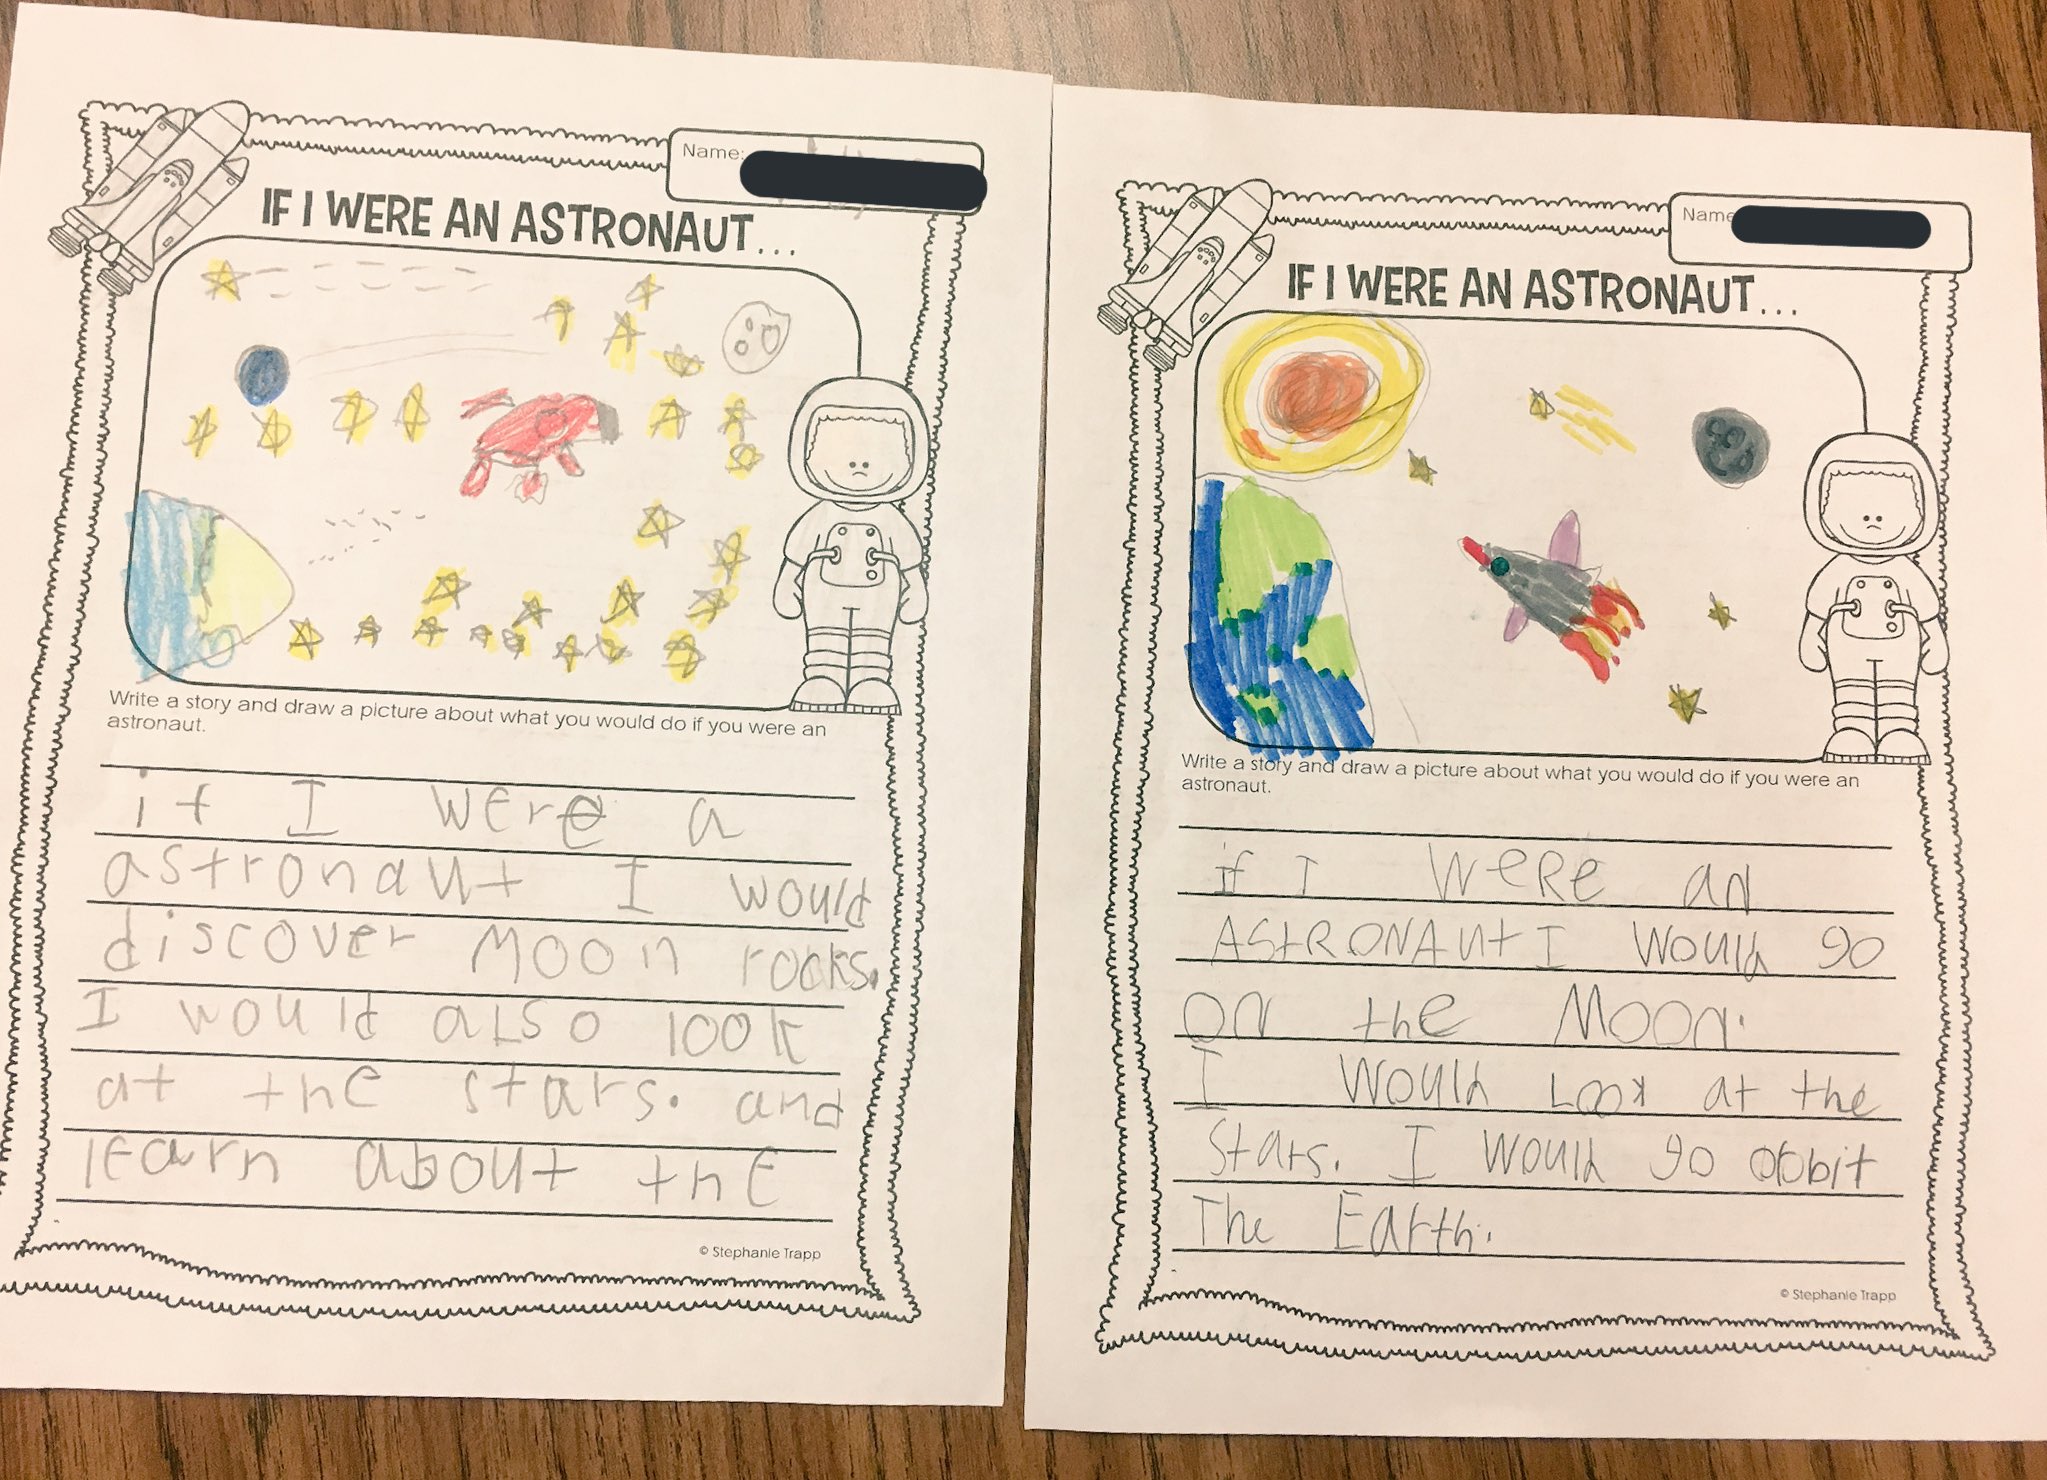 Name:
IF I WERE AN ASTRONAUT...
Write a story and draw a picture about what you would do if you were an
astronaut.
if I were a
astronaut I would
discover Moon rocks.
I would also look
at the stars. and
learn about the
© Stephanie Trapp
Name
IF I WERE AN ASTRONAUT...
Write a story and draw a picture about what you would do if you were an
astronaut.
if I WeRe an
AStRONAut I Would go
on the Moon.
I Would Look at the
Stars. I Would go obbit
The Earth.
© Stephanie Trapp